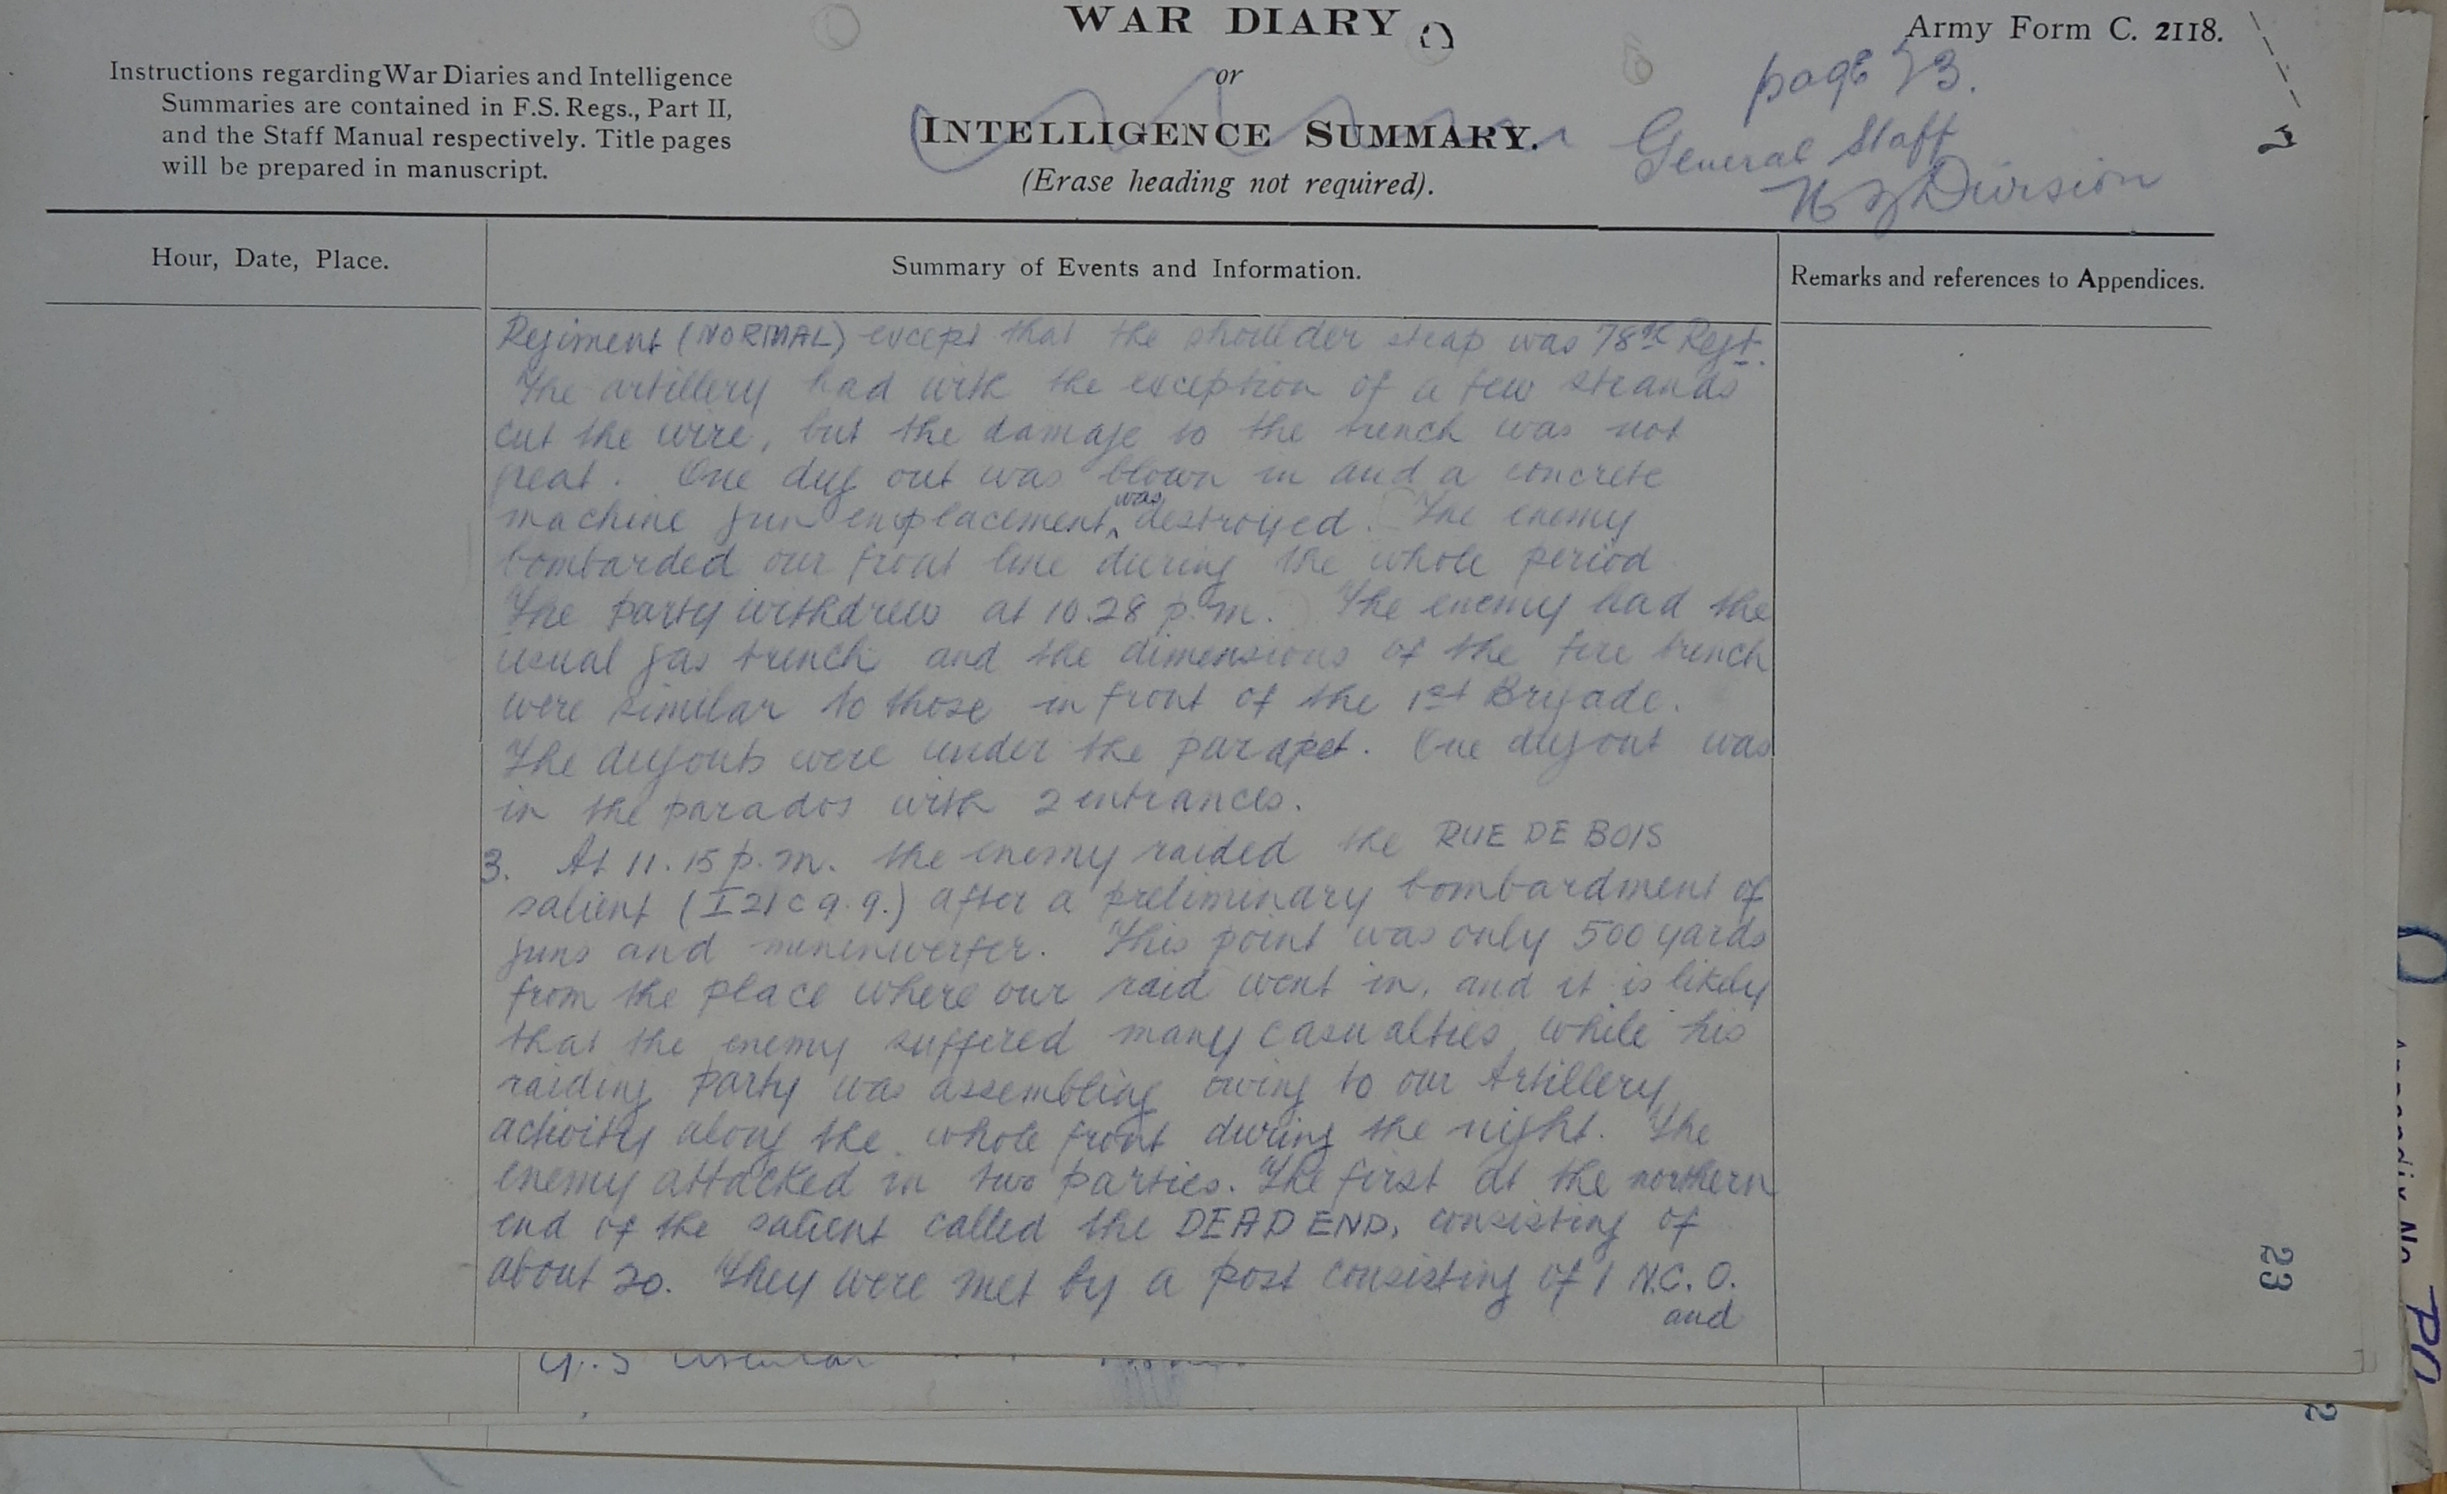 WAR DIARY
or
INTELLIGENCE SUMMARY.
(Erase heading not required).
Army Form C. 2118.
Instructions regarding War Diaries and Intelligence
Summaries are contained in F.S. Regs., Part II,
and the Staff Manual respectively. Title pages
will be prepared in manuscript.
page 23.
General Staff
N Z Division
Hour, Date, Place.
Summary of Events and Information.
Remarks and references to Appendices.
Regiment (NORMAL) except that the shoulder strap was 78th Regt.
The artillery had with the exception of a few strands
cut the wire, but the damage to the trench was not
great. One dug out was blown in and a concrete
machine gun emplacement was destroyed. The enemy
bombarded our front line during the whole period
The party withdrew at 10.28 p.m. The enemy had the
usual gas trench and the dimensions of the fire trench
were similar to those in front of the 1st Brigade.
The dugouts were under the parapet. One dugout was
in the parados with 2 entrances.
3. At 11.15 p.m. the enemy raided the RUE DE BOIS
salient (I 21 c 9.9.) after a preliminary bombardment of
guns and minenwerfer. This point was only 500 yards
from the place where our raid went in, and it is likely
that the enemy suffered many casualties while his
raiding party was assembling owing to our Artillery
activity along the whole front during the night. The
enemy attacked in two parties. The first at the northern
end of the salient called the DEAD END, consisting of
about 20. They were met by a post consisting of 1 N.C.O.
and
23